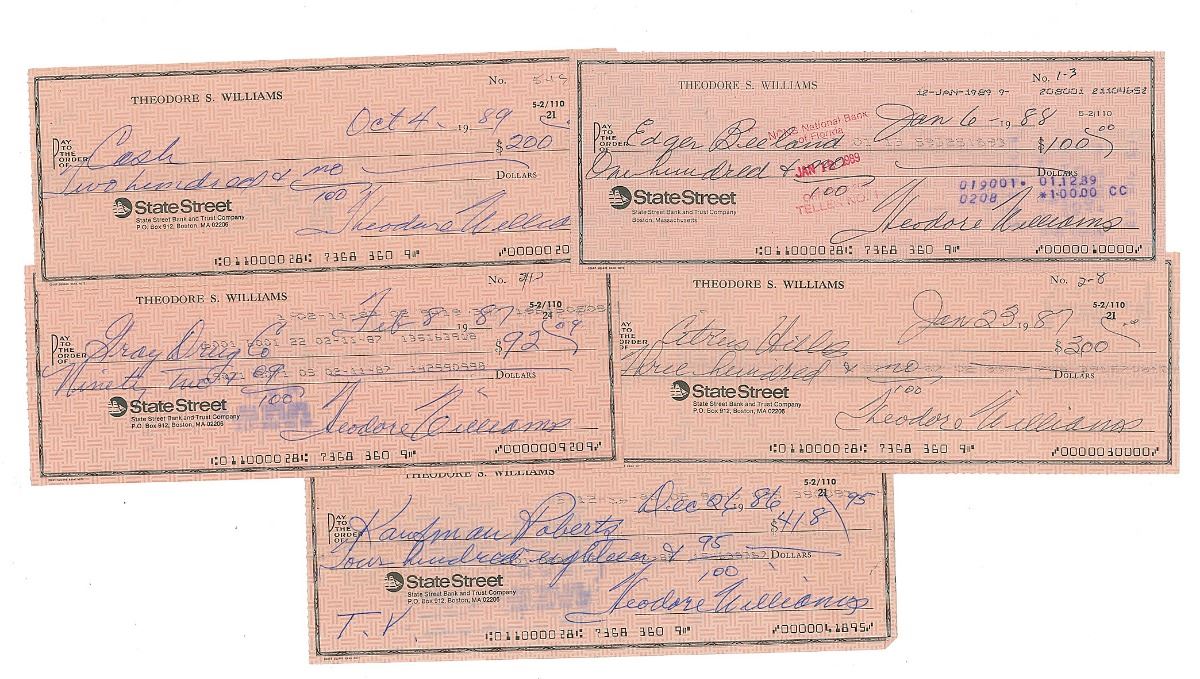 No. 5-19
THEODORE S. WILLIAMS
5-2/110
21
Oct 4 - 19 89
PAY TO THE ORDER OF Cash $200
Two hundred & no/100 DOLLARS
State Street
State Street Bank and Trust Company
P.O. Box 912, Boston, MA 02206
Theodore Willia
⑆011000028⑆ 7368 360 9⑈ ⑈00000 20
No. 1-3
THEODORE S. WILLIAMS
12-JAN-1989 9-
208001 21104652
5-2/110
Jan 6 - 19 88
NCNB National Bank
of Florida
PAY TO THE ORDER OF Edger Beeland $100 00
JAN 12 1989
One hundred & no/100 DOLLARS
TELLER NO. 1
019001• 01.12.89
0208 *100.00 CC
State Street
State Street Bank and Trust Company
Boston, Massachusetts
Theodore Williams
⑆011000028⑆ 7368 360 9⑈ ⑈0000010000⑈
No.
THEODORE S. WILLIAMS
5-2/110
24
Feb 8 19 87
PAY TO THE ORDER OF Gray Drug Co $92 09
Ninety Two & 09/100 DOLLARS
State Street
State Street Bank and Trust Company
P.O. Box 912, Boston, MA 02206
Theodore Williams
⑆011000028⑆ 7368 360 9⑈ ⑈0000009209⑈
No. 2-8
THEODORE S. WILLIAMS
5-2/110
21
Jan 23 19 87
PAY TO THE ORDER OF Citrus Hills $300
Three hundred & no/100 DOLLARS
State Street
State Street Bank and Trust Company
P.O. Box 912, Boston, MA 02206
Theodore Williams
⑆011000028⑆ 7368 360 9⑈ ⑈0000030000⑈
THEODORE S. WILLIAMS
5-2/110
21
Dec 26 19 86
PAY TO THE ORDER OF Kaufman Roberts $418 95
Four hundred eighteen & 95/100 DOLLARS
State Street
State Street Bank and Trust Company
P.O. Box 912, Boston, MA 02206
T.V.
Theodore Williams
⑆011000028⑆ 7368 360 9⑈ ⑈0000041895⑈